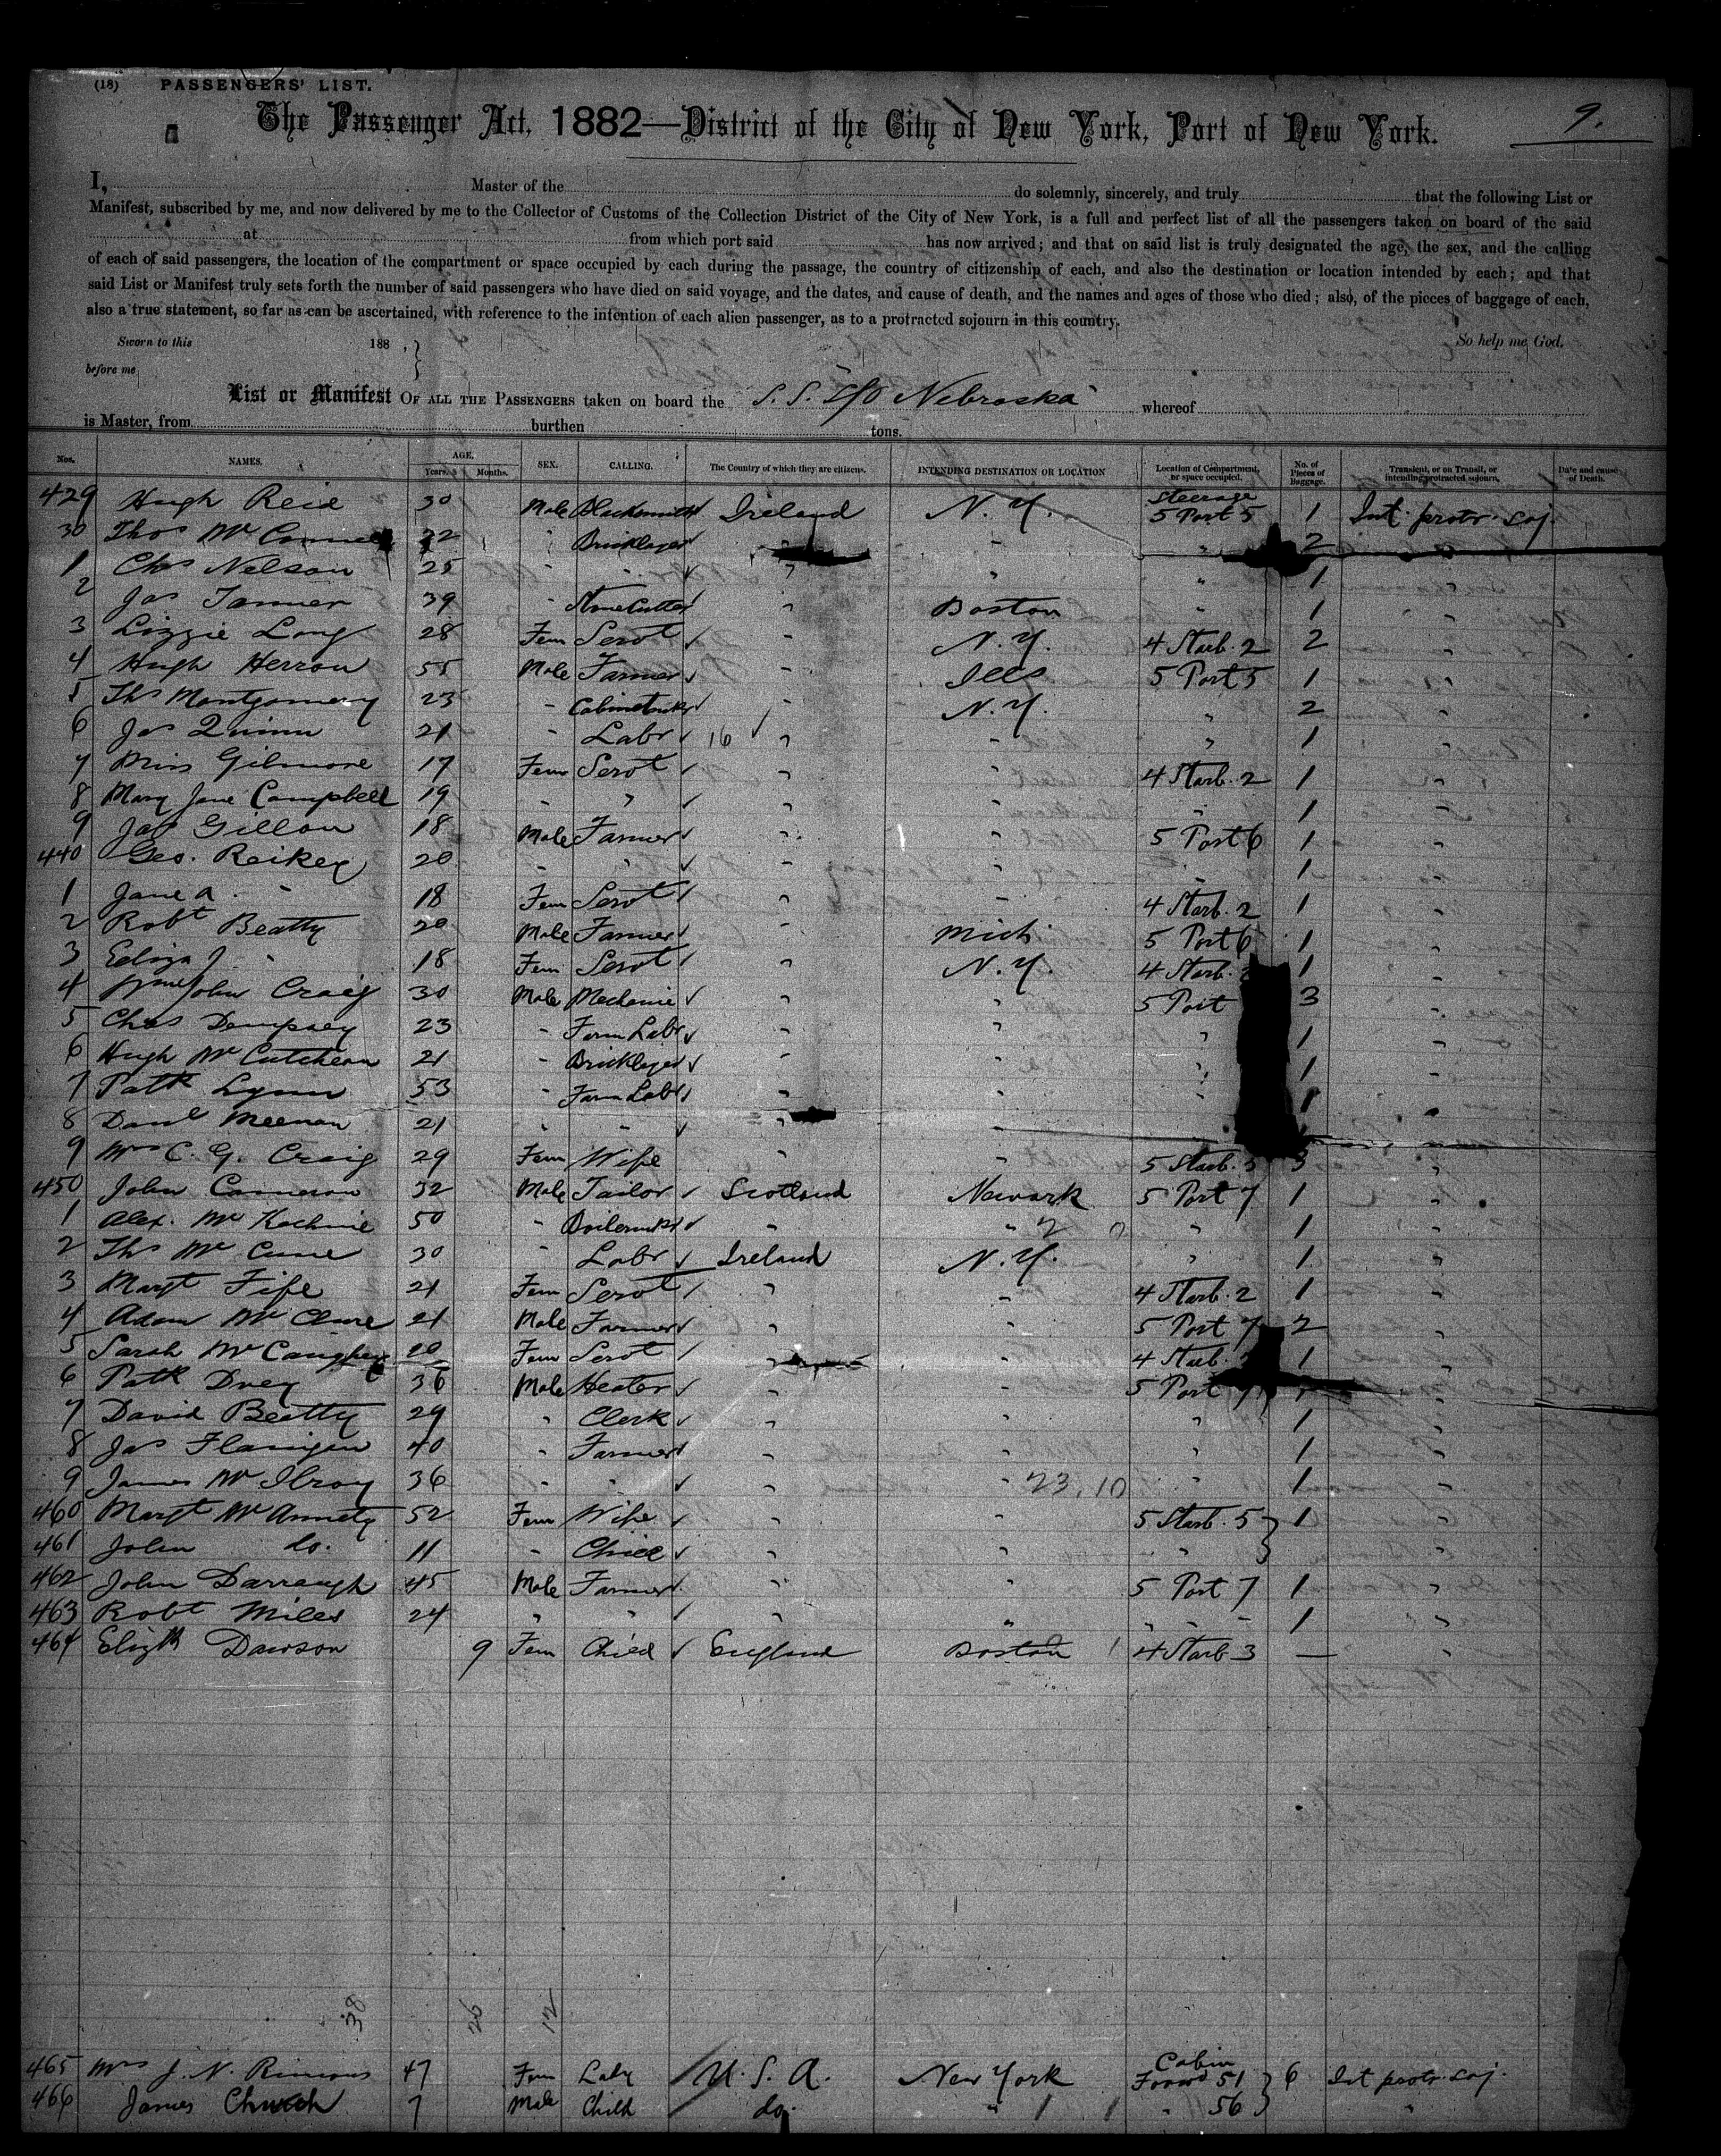 (18) PASSENGERS' LIST.
9.
The Passenger Act, 1882—District of the City of New York, Port of New York.
I, Master of the do solemnly, sincerely, and truly that the following List or
Manifest, subscribed by me, and now delivered by me to the Collector of Customs of the Collection District of the City of New York, is a full and perfect list of all the passengers taken on board of the said
at from which port said has now arrived; and that on said list is truly designated the age, the sex, and the calling
of each of said passengers, the location of the compartment or space occupied by each during the passage, the country of citizenship of each, and also the destination or location intended by each; and that
said List or Manifest truly sets forth the number of said passengers who have died on said voyage, and the dates, and cause of death, and the names and ages of those who died; also, of the pieces of baggage of each,
also a true statement, so far as can be ascertained, with reference to the intention of each alien passenger, as to a protracted sojourn in this country.
Sworn to this 188 , So help me God.
before me
List or Manifest OF ALL THE PASSENGERS taken on board the S.S. Nebraska whereof
is Master, from burthen tons.
Nos. NAMES. AGE. Years. Months. SEX. CALLING. The Country of which they are citizens. INTENDING DESTINATION OR LOCATION Location of Compartment, or space occupied. No. of Pieces of Baggage. Transient, or on Transit, or intending protracted sojourn. Date and cause of Death.
429 Hugh Reid 30 Male Blacksmith Ireland N.Y. Steerage 5 Port 5 1 Int. protr. soj.
30 Thos Mc 22 " Bricklayer " " " 2
1 Chs Nelson 25 " " " " " 1 "
2 Jas Tanner 39 " Stone Cutter " Boston " 1 "
3 Lizzie Long 28 Fem Servt " N.Y. 4 Starb. 2 2 "
4 Hugh Herron 55 Male Farmer " Ills 5 Port 5 1 "
5 Ths Montgomery 23 " Cabinetmkr " N.Y. " 2 "
6 Jas Quinn 21 " Labr 16 " " " 1 "
7 Miss Gilmore 17 Fem Servt " " 4 Starb. 2 1 "
8 Mary Jane Campbell 19 " " " " " 1 "
9 Jas Gillon 18 Male Farmer " " 5 Port 6 1 "
440 Geo. Reikey 20 " " " " " 1 "
1 Jane A. " 18 Fem Servt " " 4 Starb. 2 1 "
2 Robt Beatty 20 Male Farmer " Mich 5 Port 6 1 "
3 Eliza J. " 18 Fem Servt " N.Y. 4 Starb. 1 "
4 Wm John Craig 30 Male Mechanic " " 5 Port 3 "
5 Chas Dempsey 23 " Farm Labr " " " 1 "
6 Hugh McCutcheon 21 " Bricklayer " " " 1 "
7 Patk Lynn 53 " Farm Labr " " " 1 "
8 Danl Meenan 21 " " " "
9 Mrs C. G. Craig 29 Fem Wife " " 5 Starb. 3 "
450 John Cameron 32 Male Tailor Scotland Newark 5 Port 7 1 "
1 Alex. Mc Kechnie 50 " Boilermkr " " " 1 "
2 Ths Mc Cune 30 " Labr Ireland N.Y. " 1 "
3 Margt Fife 21 Fem Servt " " 4 Starb. 2 1 "
4 Adam Mc Clure 21 Male Farmer " " 5 Port 7 2 "
5 Sarah Mc Caughey 20 Fem Servt " " 4 Starb. 1 "
6 Patk Dvey 36 Male Heater " " 5 Port 7 "
7 David Beatty 29 " Clerk " " " 1 "
8 Jas Flanigan 40 " Farmer " " " 1 "
9 James Mc Ilroy 36 " " " " 23.10 " 1 "
460 Margt Mc 52 Fem Wife " " 5 Starb. 5 1 "
461 John do. 11 " Child " " " "
462 John Darraugh 45 Male Farmer " " 5 Port 7 1 "
463 Robt Miles 24 " " " " " " " 1 "
464 Elizth Dawson 9 Fem Child England Boston 4 Starb 3 — "
38 26 12
465 Mrs J. N. 47 Fem Lady U.S.A. New York Cabin 51 6 Int protr. soj.
466 James Church 7 Male Child do. " " 56 "